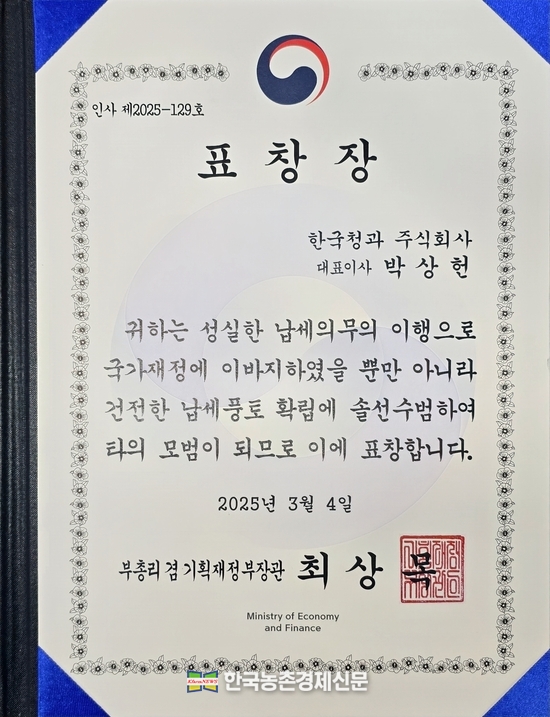 인사 제2025-129호
표 창 장
한국청과 주식회사
대표이사 박 상 헌
귀하는 성실한 납세의무의 이행으로
국가재정에 이바지하였을 뿐만 아니라
건전한 납세풍토 확립에 솔선수범하여
타의 모범이 되므로 이에 표창합니다.
2025년 3월 4일
부총리 겸 기획재정부장관 최 상 목
Ministry of Economy
and Finance
한국농촌경제신문